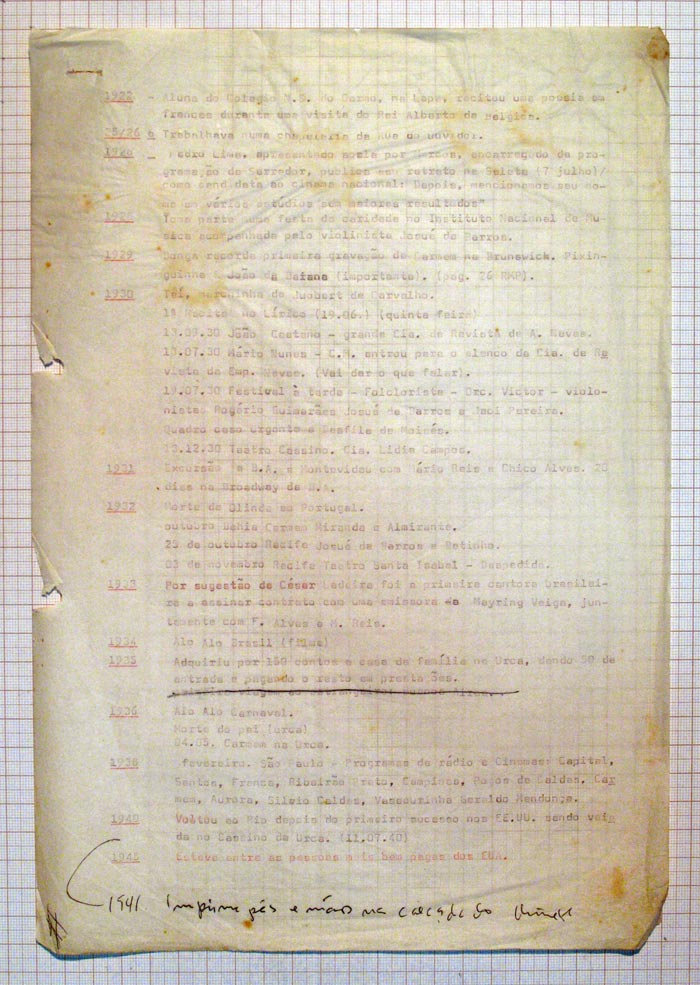 1922 - Aluna do Colegio N.S. do Carmo, na Lapa, recitou uma poesia em
frances durante uma visita do Rei Alberto da Belgica.
25/26 Trabalhava numa chapelaria da Rua do Ouvidor.
1926 Pedro Lima, apresentado por encarregado da pro-
gramação do Serrador, publica em retrato na Seleta (7 julho)/
como candidata ao cinema nacional: Depois, mencionamos seu no-
me em vários estúdios sem maiores resultados"
Toma parte numa festa de caridade no Instituto Nacional de Mu-
sica acompanhada pelo violinista Josué de Barros.
1929 recorda primeira gravação de Carmem na Brunswick. Pixin-
guinha e João da Baiana (importante). (pag. 26 RKP).
1930 Taí, marchinha de Joubert de Carvalho.
Recital no Lírico (19.06.) (quinta feira)
13.09.30 João Caetano - grande Cia. de Revista de A. Neves.
13.07.30 Mário Nunes - C.M. entrou para o elenco da Cia. de Re
vista da Emp. Neves. (Vai dar o que falar).
19.07.30 Festival à tarde - Folclorista - Orc. Victor - violo-
nistas Rogério Guimarães Josué de Barros e Jaci Pereira.
Quadro caso urgente e Desfile de Moisés.
13.12.30 Teatro Cassino. Cia. Lidia Campos.
1931 Excursão a B.A. e Montevideu com Mário Reis e Chico Alves. 20
dias na Broadway de B.A.
1932 Morte de Olinda em Portugal.
outubro Bahia Carmem Miranda e Almirante.
25 de outubro Recife Josué de Barros e Betinho.
03 de novembro Recife Teatro Santa Isabel - Despedida.
1933 Por sugestão de César Ladeira foi a primeira cantora brasilei-
ra a assinar contrato com uma emissora Mayring Veiga, jun-
tamente com F. Alves e M. Reis.
1934 Alo Alo Brasil (filme)
1935 Adquiriu por 150 contos a casa da família na Urca, dando 50 de
entrada e pagando o resto em prestações.
1936 Alo Alo Carnaval.
Morte do pai (urca)
04.05. Carmem na Urca.
1938 fevereiro. São Paulo - Programas de rádio e Cinemas: Capital,
Santos, Franca, Ribeirão Preto, Campinas, Poços de Caldas, Car
mem, Aurora, Silvio Caldas, Vassourinha Geraldo Mendonça.
1940 Voltou ao Rio depois do primeiro sucesso nos EE.UU. sendo vaia
da no Cassino da Urca. (11.07.40)
1945 Esteve entre as pessoas mais bem pagas dos EUA.
1941 Imprime pés e mãos na calçada do